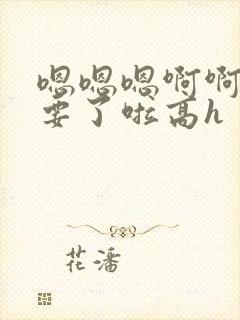 嗯嗯嗯啊啊
要了啦高h
花潘